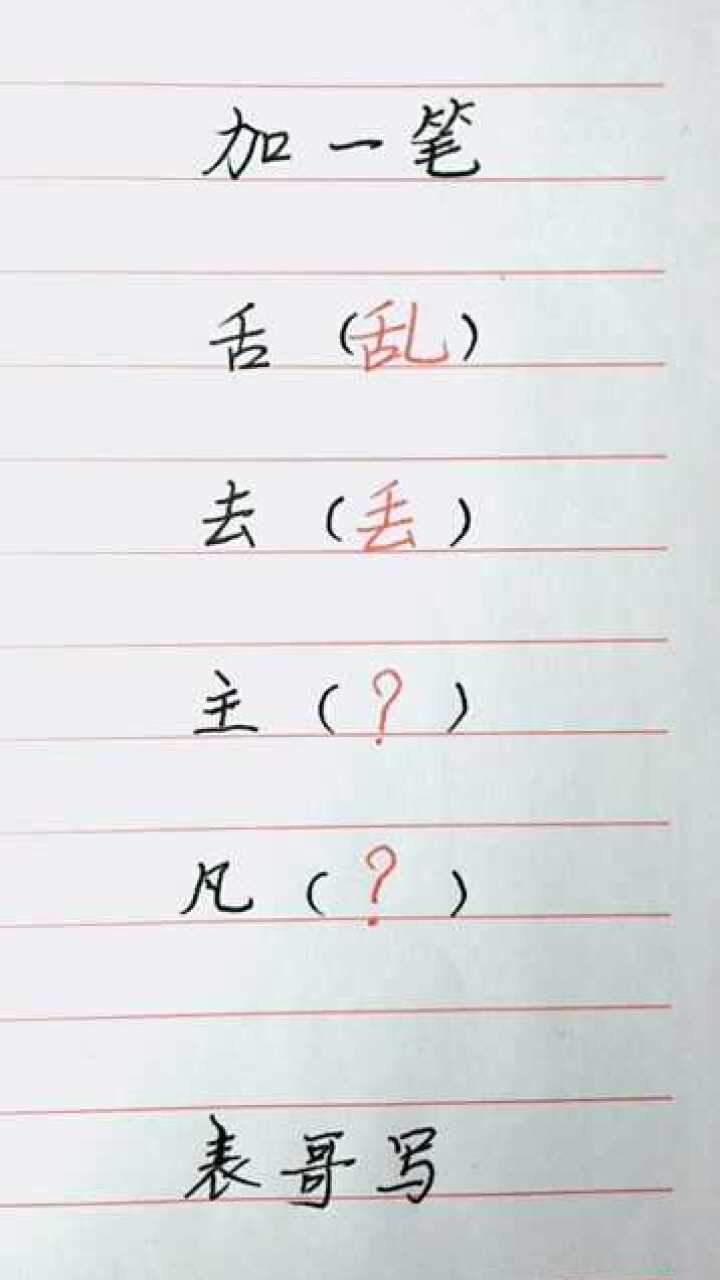 加一笔
舌（乱）
去（丢）
主（?）
凡（?）
表哥写